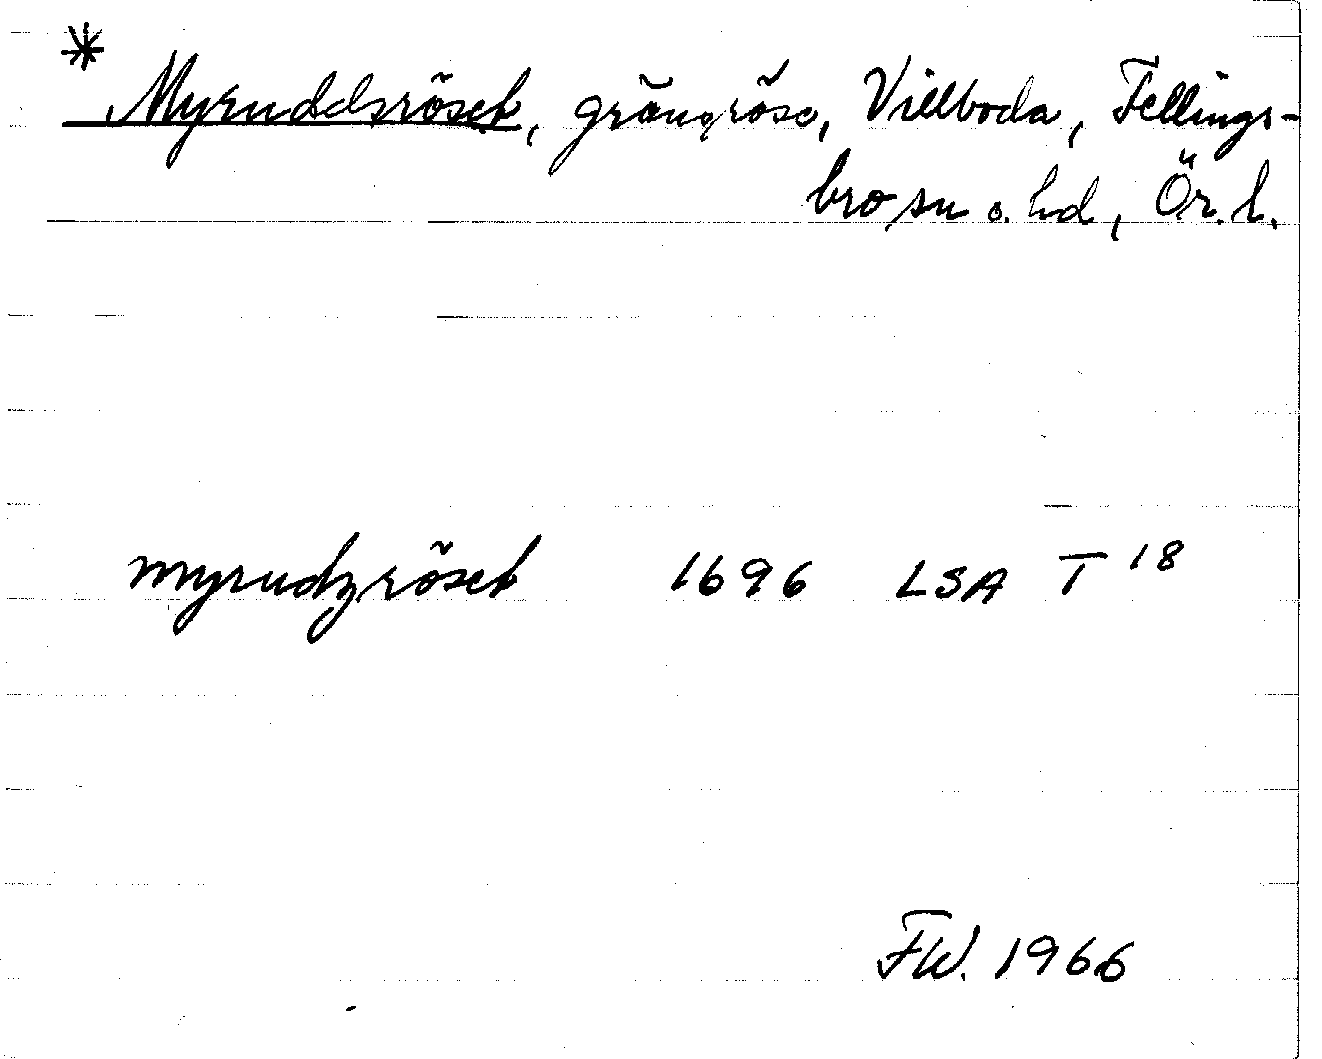 * Myruddsröset, gränsröse, Villboda, Fellings-
bro sn o. hd, Ör. l.
myrudzröset 1696 LSA T 18
FW. 1966